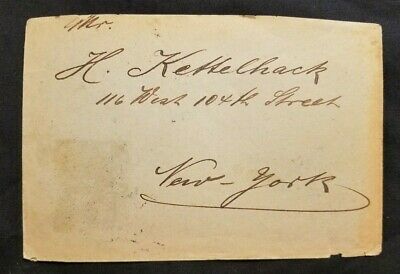 Mr.
H. Kettelhack
116 West 104th Street
New-York